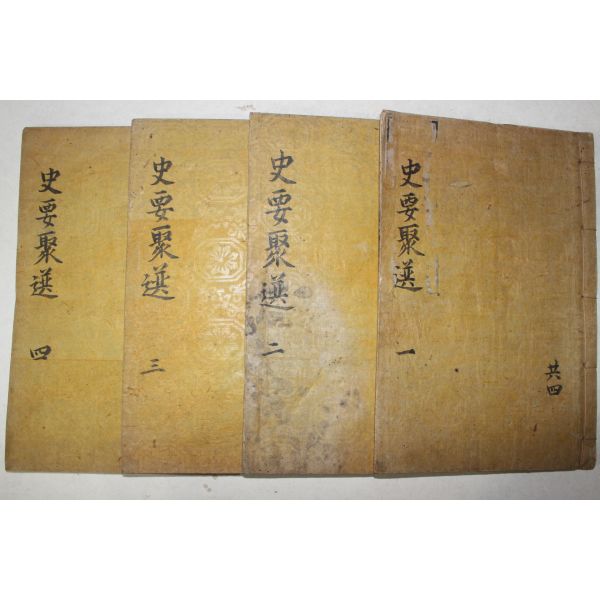 史要聚選
一
共四
史要聚選
二
史要聚選
三
史要聚選
四